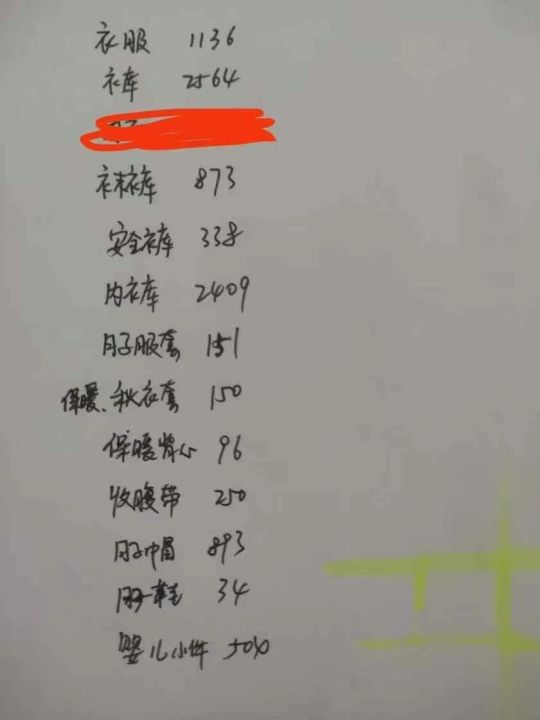 衣服 1136
裤 2564
袜裤 873
安全裤 338
内裤 2409
月子服套 151
保暖、秋衣套 150
保暖背心 96
收腹带 250
月子帽 893
月子鞋 34
婴儿小件